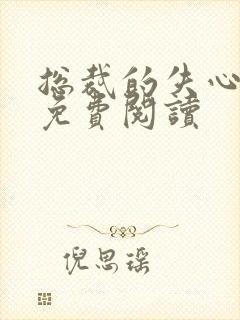 总裁的失心
免費閱讀
倪思瑶